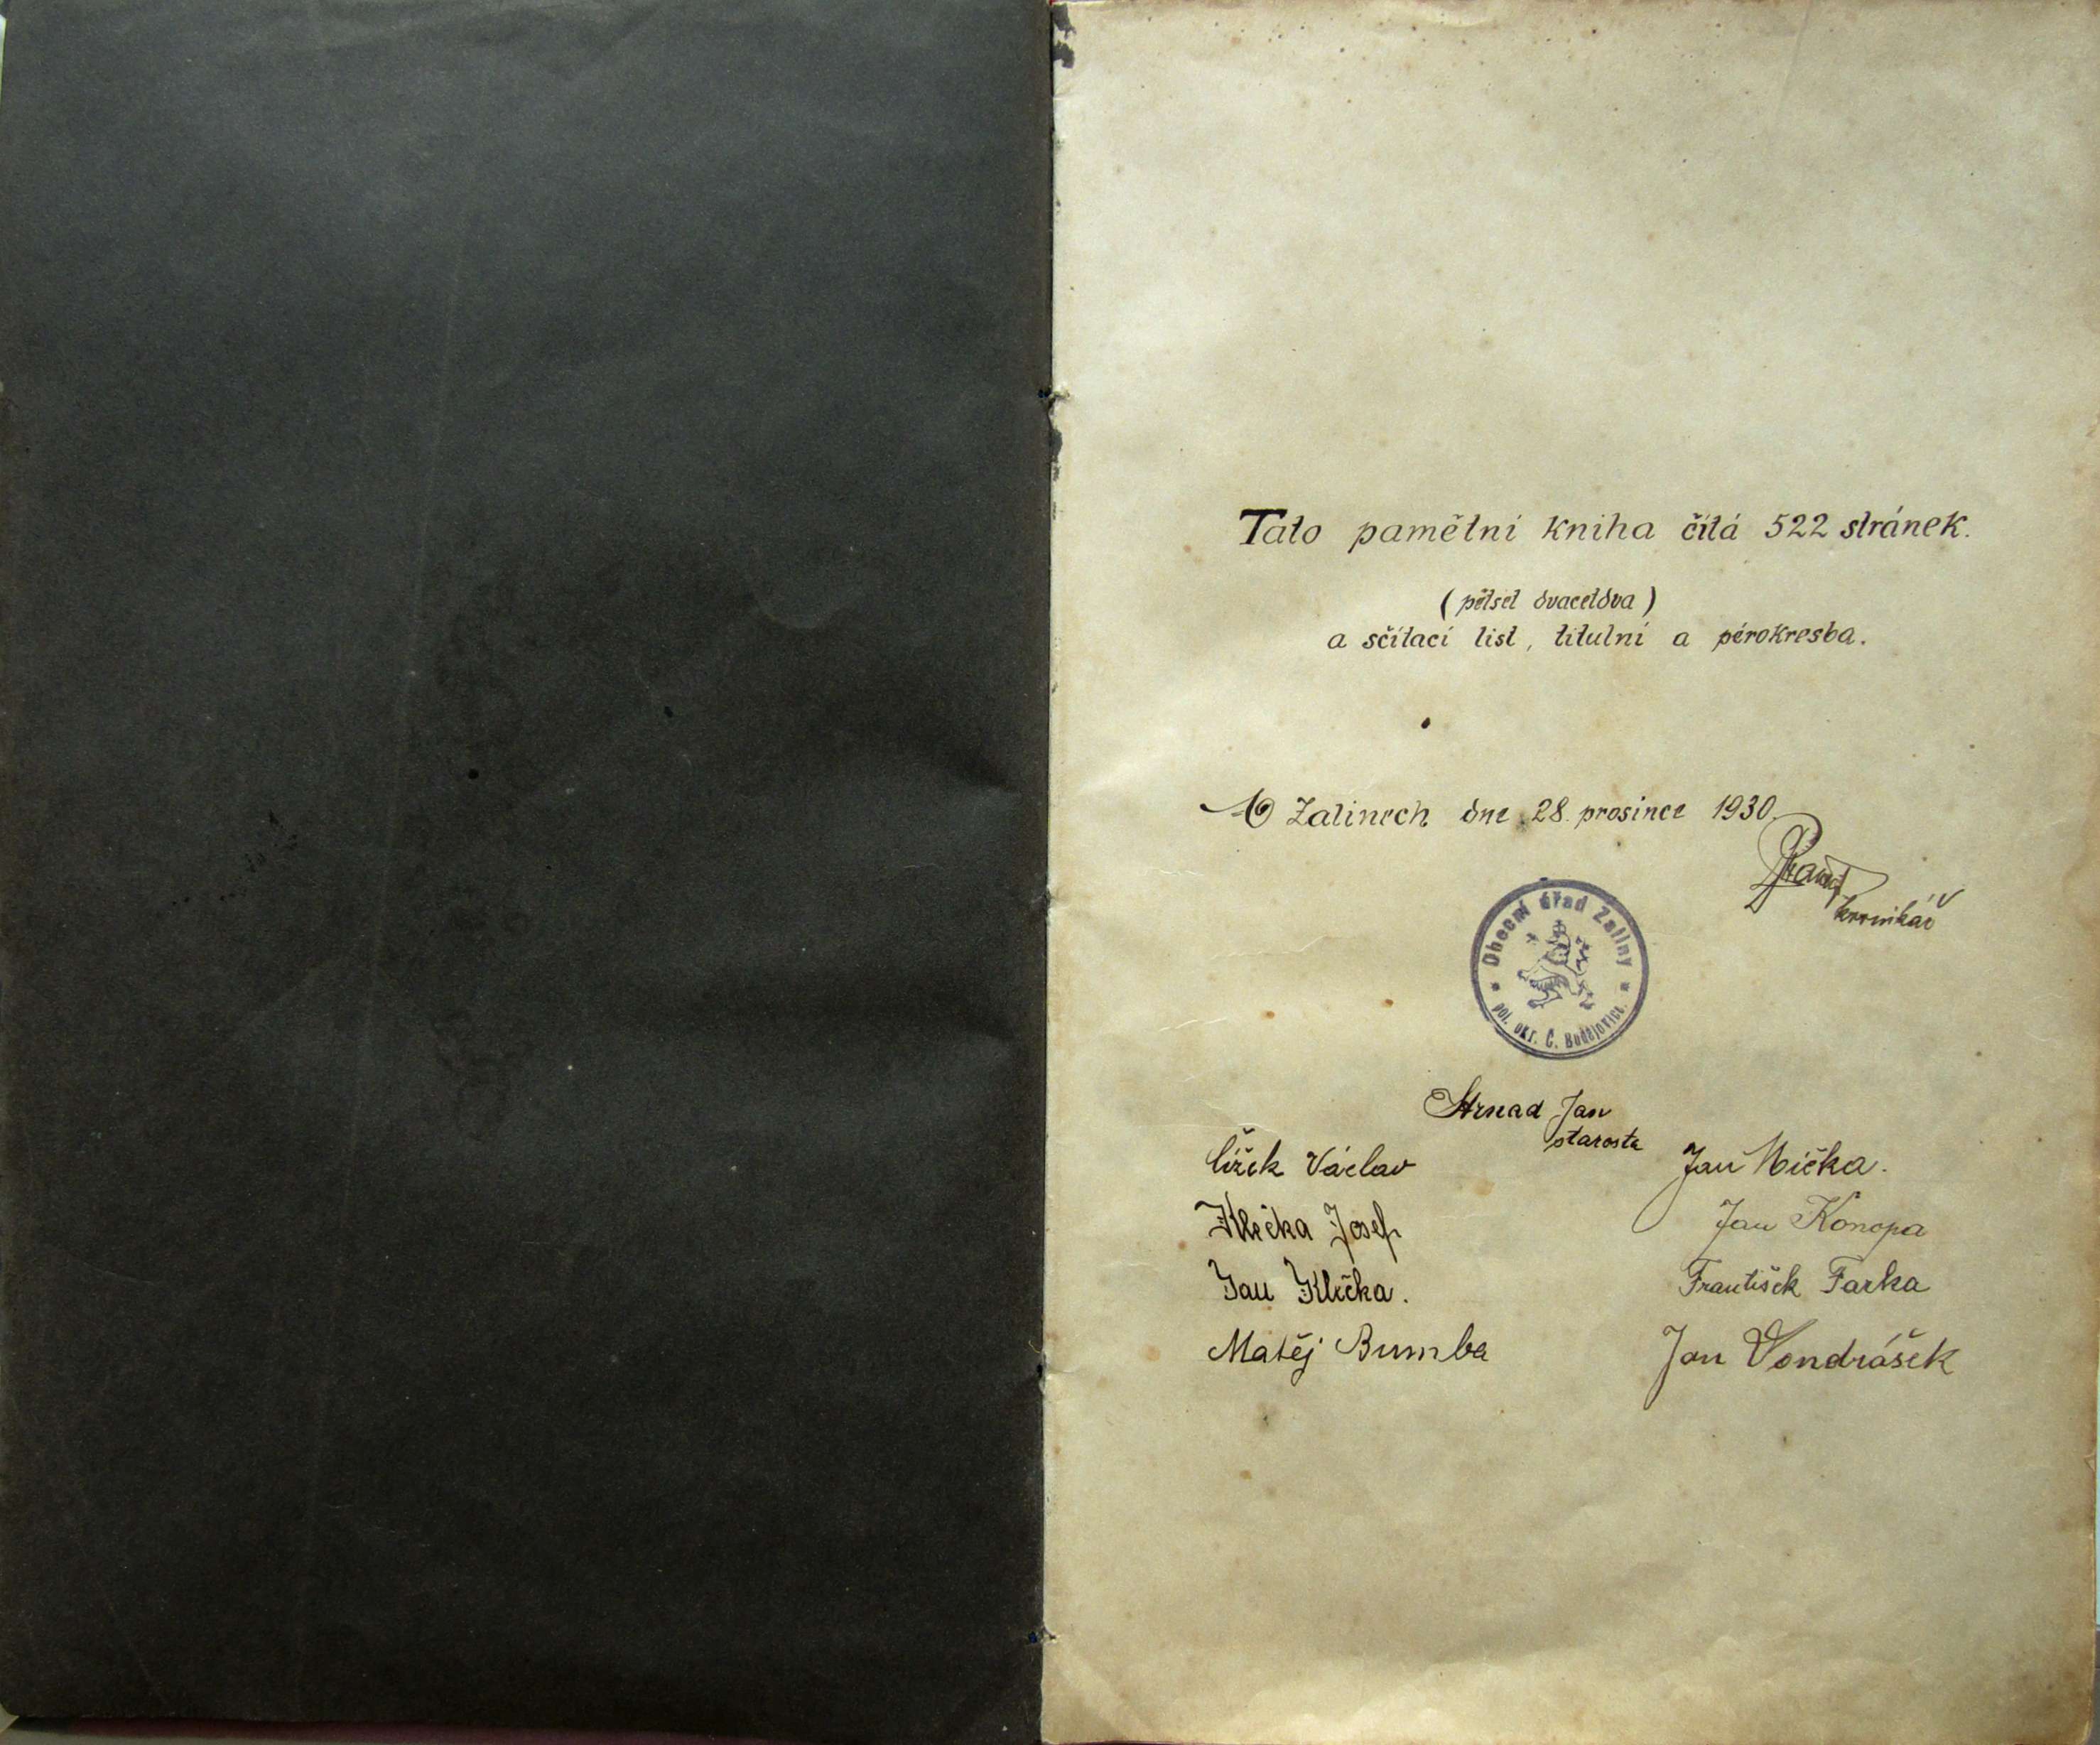 Tato pamětní kniha čítá 522 stránek.
(pětset dvacetdva)
a sčítací list, titulní a pérokresba.
V Zalinech dne 28. prosince 1930.
kronikář
Obecní úřad Zaliny
pol. okr. Č. Budějovice.
Strnad Jan
starosta
Čížek Václav
Jan Mička.
Klečka Josef
Jan Konopa
Jan Klečka.
František Farka
Matěj Bumba
Jan Vondrášek